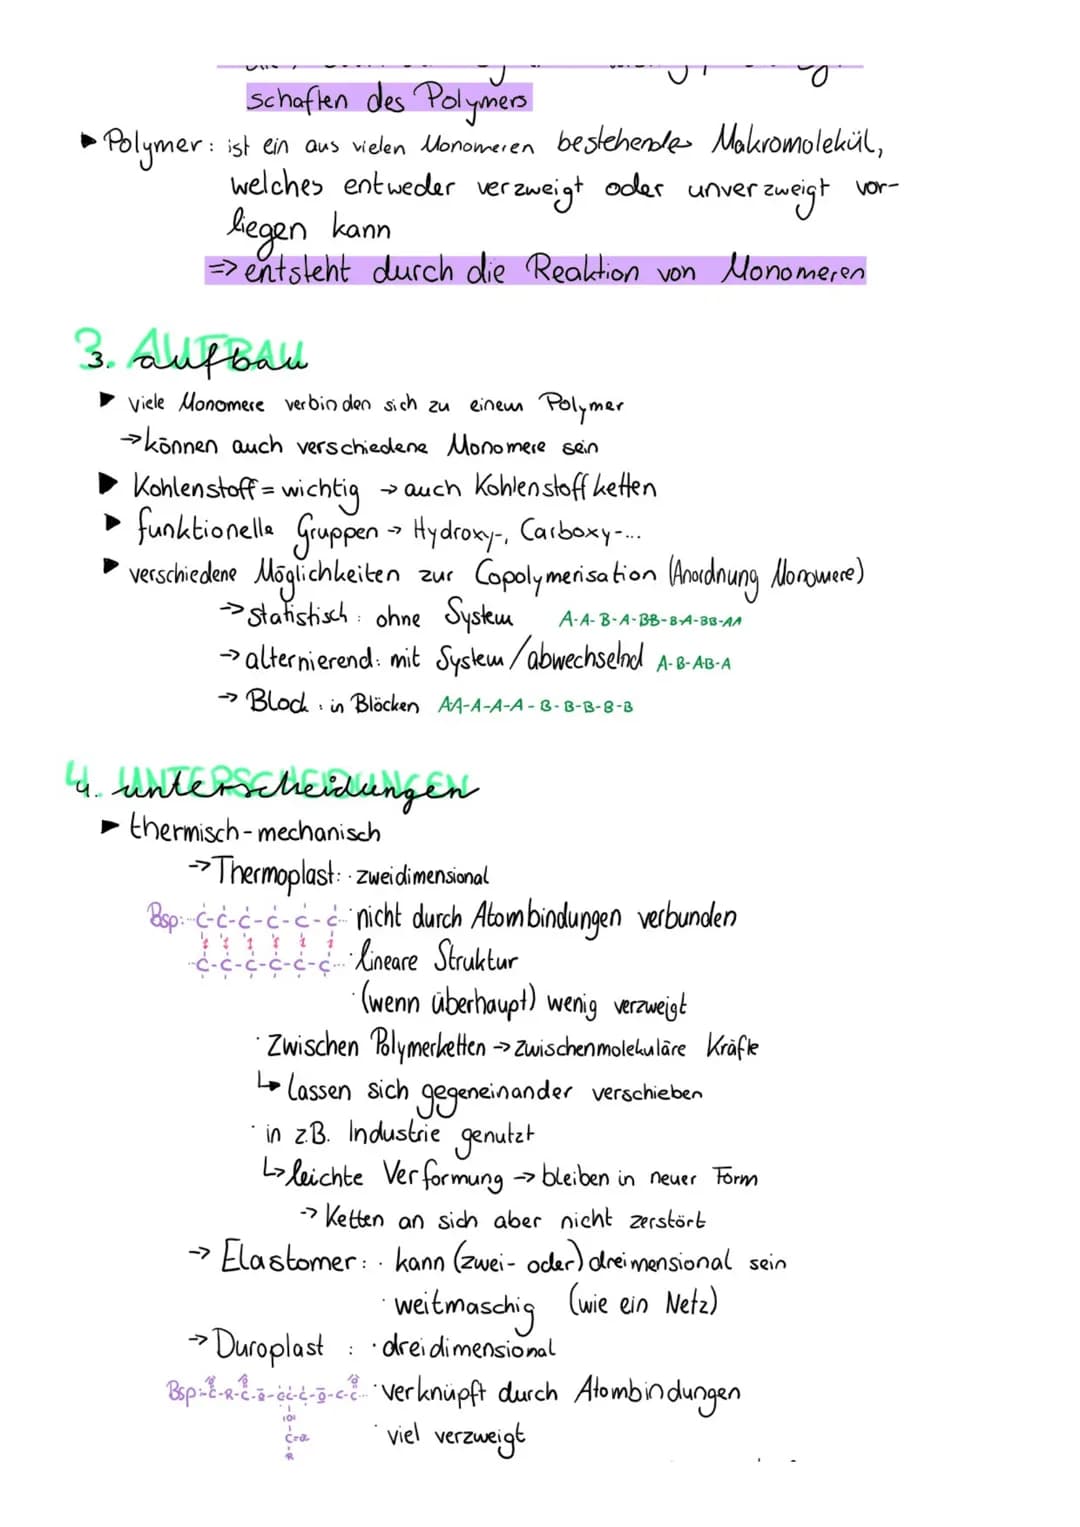 schaften des Polymers
▶ Polymer: ist ein aus vielen Monomeren bestehendes Makromolekül,
welches entweder verzweigt oder unverzweigt vor-
liegen kann
=> entsteht durch die Reaktion von Monomeren
3. AUFBAU
3. aufbau
▶ viele Monomere verbinden sich zu einem Polymer
→ können auch verschiedene Monomere sein
▶ Kohlenstoff = wichtig → auch Kohlenstoffketten
▶ funktionelle Gruppen → Hydroxy-, Carboxy-...
▶ verschiedene Möglichkeiten zur Copolymerisation (Anordnung Monomere)
→ statistisch: ohne System A-A-B-A-BB-B-A-BB-AA
→ alternierend: mit System/abwechselnd A-B-AB-A
→ Block: in Blöcken AA-A-A-A-B-B-B-B-B
4. UNTERSCHEIDUNGEN
4. unterscheidungen
▶ thermisch-mechanisch
→ Thermoplast: · zweidimensional
Bsp: ··-C-C-C-C-C-C-·· · nicht durch Atombindungen verbunden
··-C-C-C-C-C-C-·· · lineare Struktur
· (wenn überhaupt) wenig verzweigt
· Zwischen Polymerketten → zwischenmolekuläre Kräfte
↳ lassen sich gegeneinander verschieben
· in z.B. Industrie genutzt
↳ leichte Verformung → bleiben in neuer Form
→ Ketten an sich aber nicht zerstört
→ Elastomer: · kann (zwei- oder) dreimensional sein
· weitmaschig (wie ein Netz)
→ Duroplast : · dreidimensional
Bsp: · verknüpft durch Atombindungen
· viel verzweigt